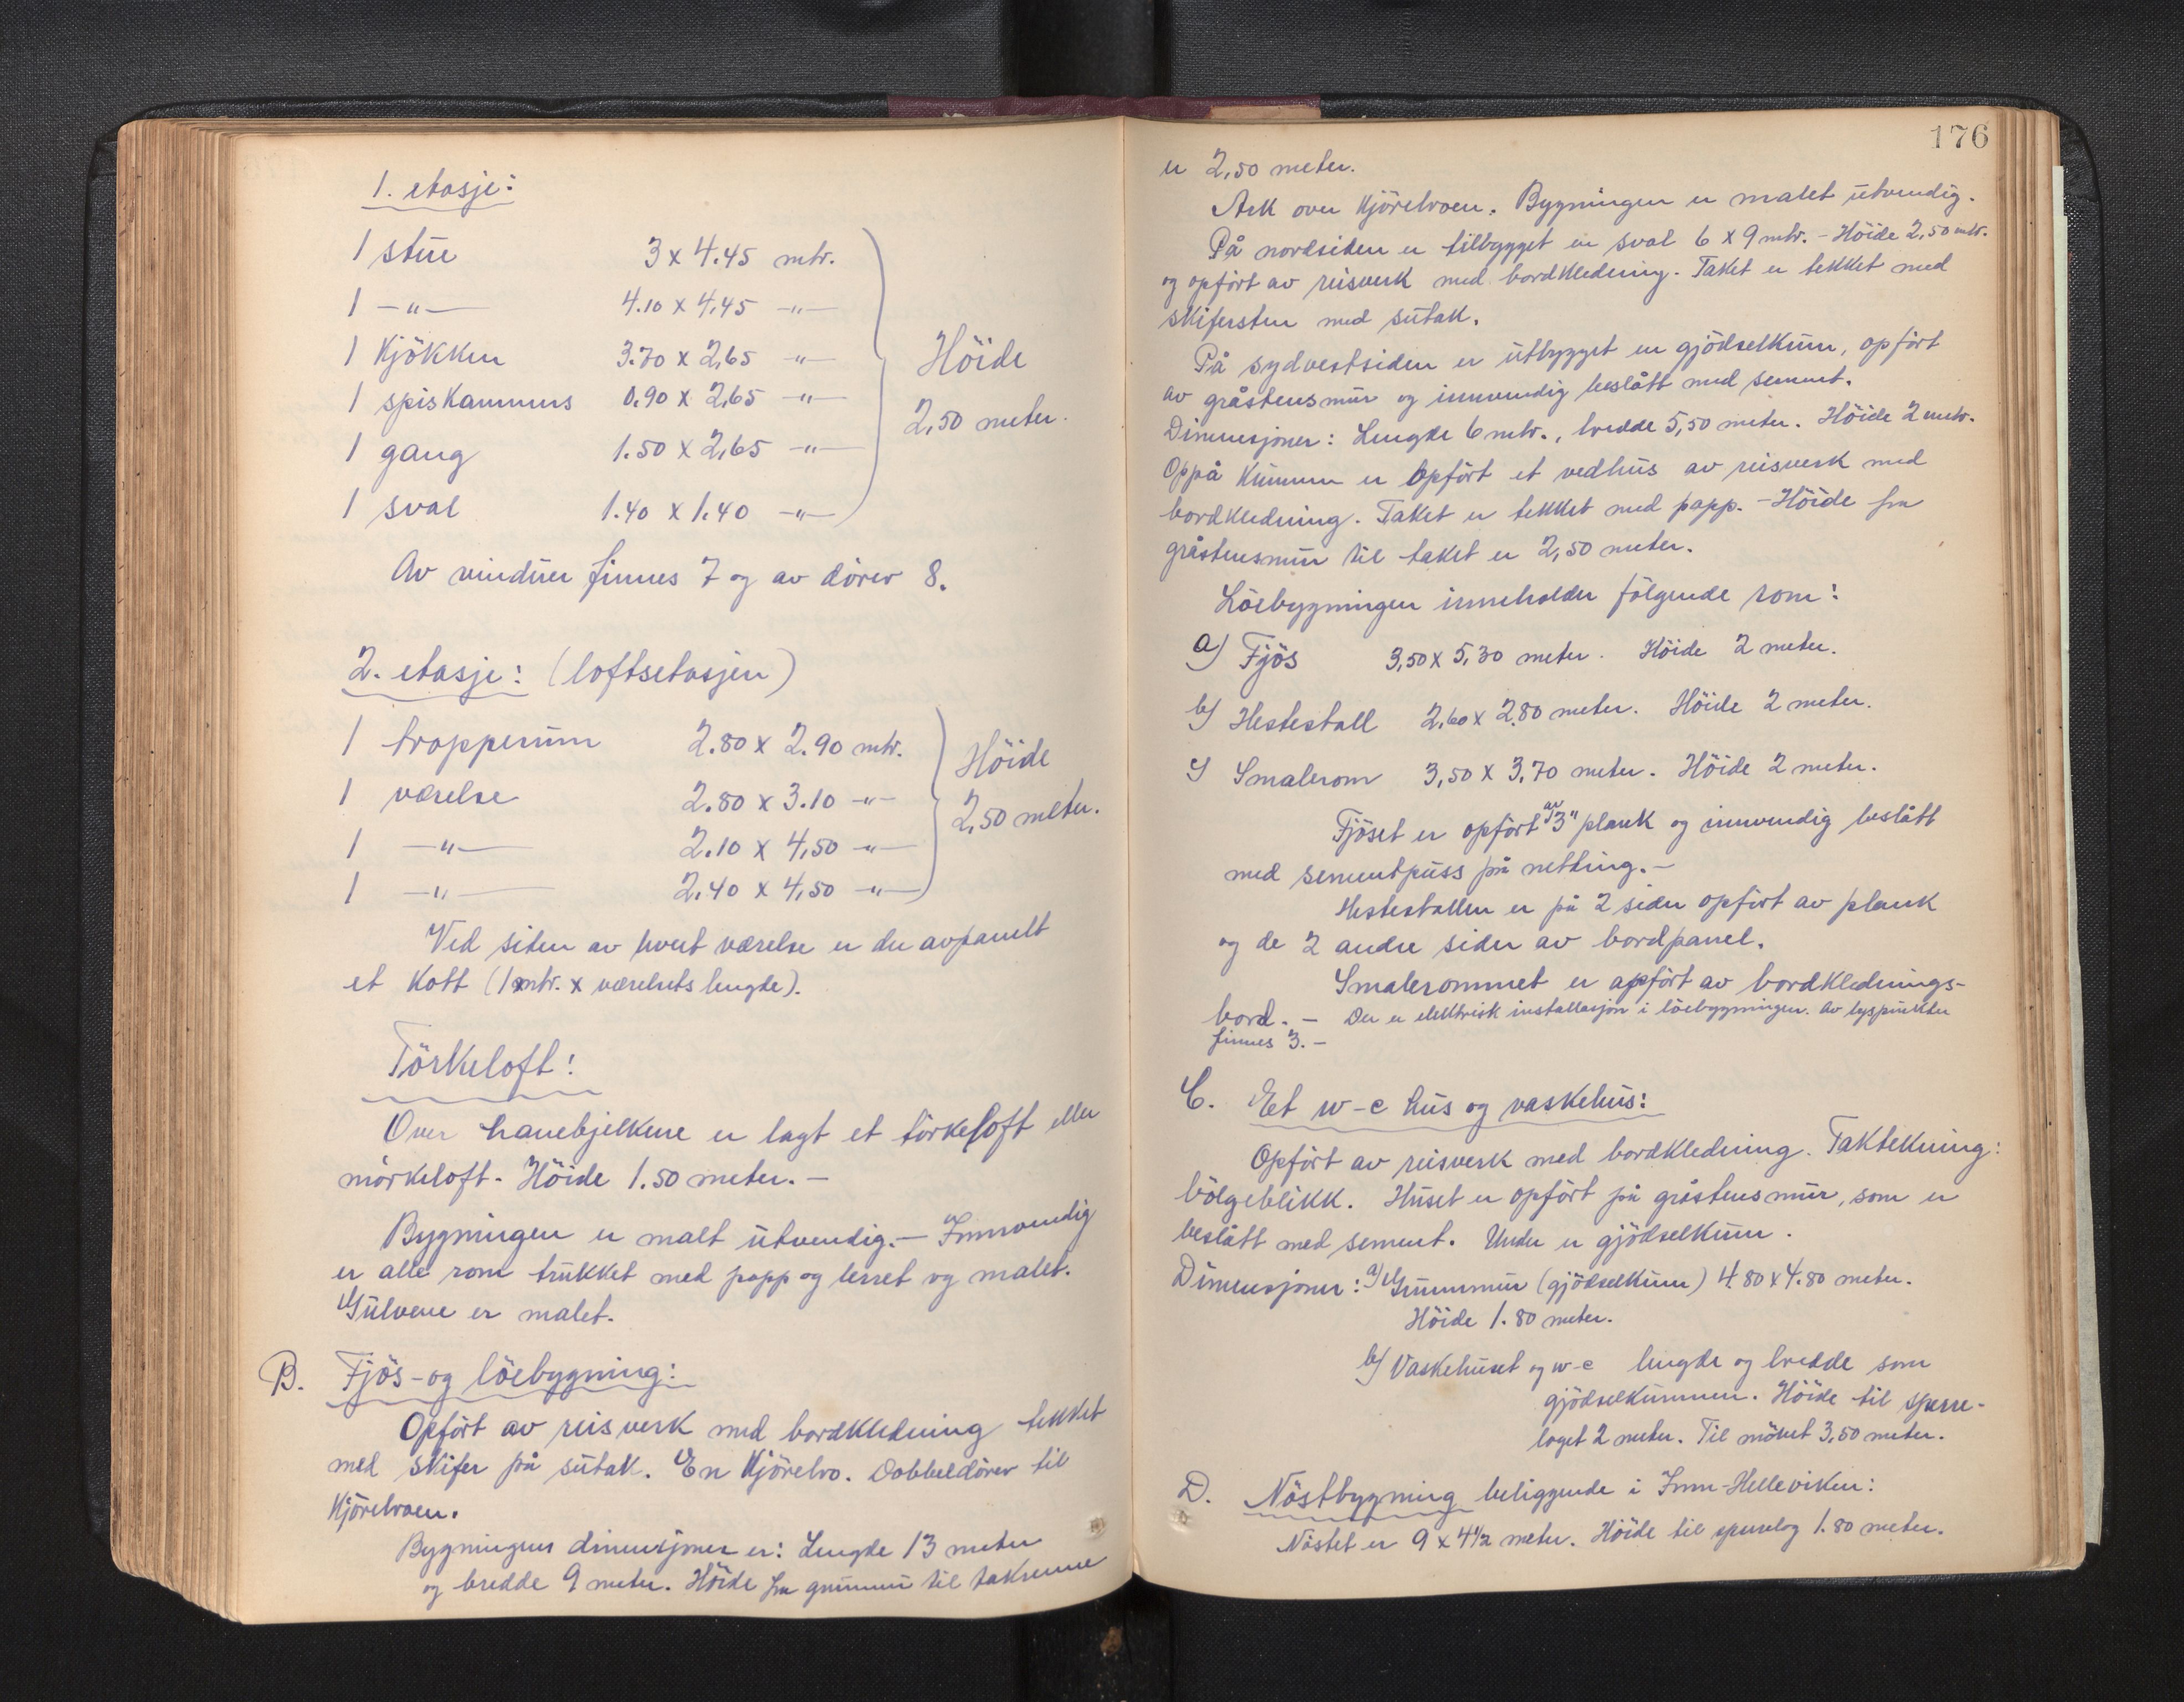 1. etasje:
1 stue 3 x 4.45 mtr.
1 -"- 4.10 x 4.45 -"-
1 Kjökken 3.70 x 2,65 -"-
1 spiskammers 0.90 x 2,65 -"-
1 gang 1.50 x 2,65 -"-
1 sval 1.40 x 1.40 -"-
Höide
2,50 meter.
Av vinduer finnes 7 og av dörer 8.
2. etasje: (loftsetasjen)
1 trapperum 2.80 x 2.90 mtr.
1 værelse 2.80 x 3.10 -"-
1 -"- 2.10 x 4,50 -"-
1 -"- 2.40 x 4,50 -"-
Höide
2,50 meter.
Ved siden av hvert værelse er der avpanelt
et Kott (1 mtr. x værelsets lengde).
Törkeloft:
Over hanebjelkene er lagt et törkeloft eller
mörkeloft. Höide 1.50 meter. -
Bygningen er malt utvendig. - Innvendig
er alle rom trukket med papp og lerret og malet.
Gulvene er malet.
B. Fjös- og löebygning:
Opfört av reisverk med bordkledning tekket
med skifer på sutak. En Kjörebro. Dobbeldörer til
Kjörebroen.
Bygningens dimensjoner er: Lengde 13 meter
og bredde 9 meter. Höide fra grunnmur til takrenne
176
er 2,50 meter.
Ark over Kjörebroen. Bygningen er malet utvendig.
På nordsiden er tilbygget en sval 6 x 9 mtr. - Höide 2,50 mtr.
og opfört av reisverk med bordkledning. Taket er tekket med
skifersten med sutak.
På sydvestsiden er utbygget en gjödselkum, opfört
av gråstensmur og innvendig beslått med sement.
Dimensjoner: Lengde 6 mtr., bredde 5,50 meter. Höide 2 mtr.
Oppå Kummen er opfört et vedhus av reisverk med
bordkledning. Taket er tekket med papp. - Höide fra
gråstensmur til taket er 2,50 meter.
Löebygningen inneholder fölgende rom:
a) Fjös 3,50 x 5,30 meter. Höide 2 meter.
b) Hestestall 2,60 x 2.80 meter. Höide 2 meter.
c) Smalerom 3,50 x 3,70 meter. Höide 2 meter.
Fjöset er opfört av 3" plank og innvendig beslått
med sementpuss på netting. -
Hestestallen er på 2 sider opfört av plank
og de 2 andre sider av bordpanel.
Smalerommet er opfört av bordklednings-
bord. - Der er elektrisk installasjon i löebygningen. Av lyspunkter
finnes 3. -
C. Et w-c hus og vaskehus:
Opfört av reisverk med bordkledning. Taktekning:
bölgeblikk. Huset er opfört på gråstensmur, som er
beslått med sement. Under er gjödselkum.
Dimensjoner: a) Grunnmur (gjödselkum) 4.80 x 4.80 meter.
Höide 1.80 meter.
b) Vaskehuset og w-c lengde og bredde som
gjödselkummen. Höide til sperre-
laget 2 meter. Til mönet 3,50 meter.
D. Nöstbygning beliggende i Inn-Helleviken:
Nöstet er 9 x 4 1/2 meter. Höide til sperrelag 1.80 meter.